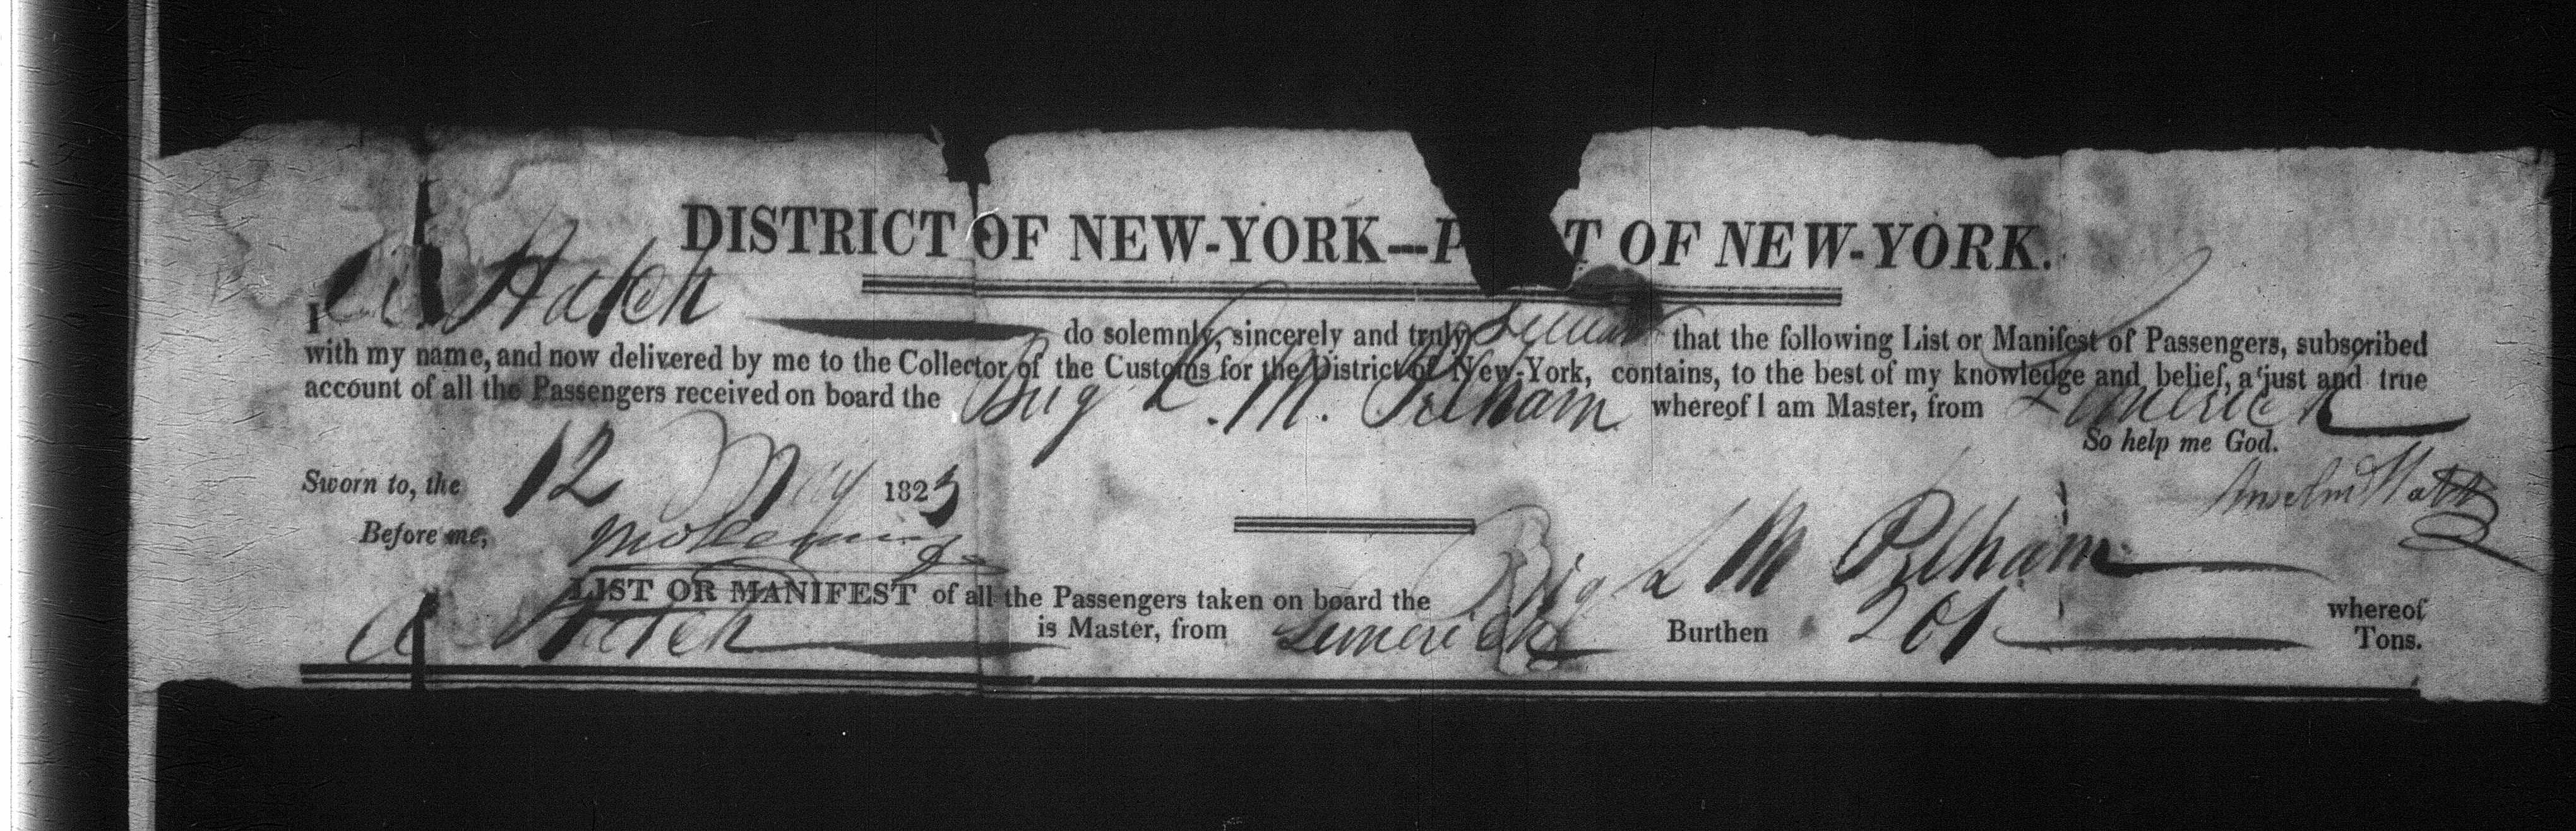 DISTRICT OF NEW-YORK—P T OF NEW-YORK.
I A. Hatch do solemnly, sincerely and truly Swear that the following List or Manifest of Passengers, subscribed
with my name, and now delivered by me to the Collector of the Customs for the District of New-York, contains, to the best of my knowledge and belief, a just and true
account of all the Passengers received on board the Brig L. M. Pelham whereof I am Master, from Limerick
So help me God.
Sworn to, the 12 May 1823
Anselm Hatch
Before me,
LIST OR MANIFEST of all the Passengers taken on board the Brig L M Pelham whereof
A Hatch is Master, from Limerick Burthen 201 Tons.